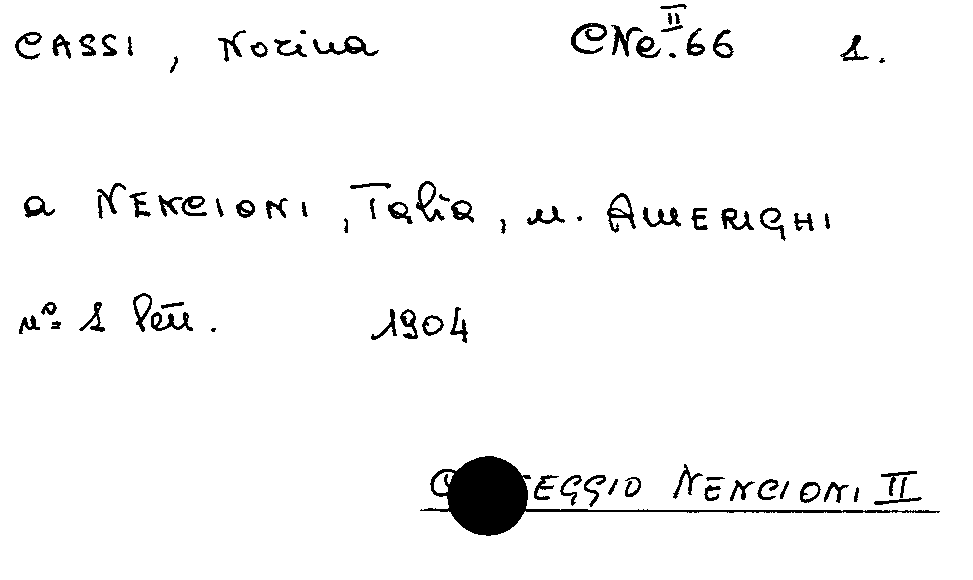 CASSI, Norina CNe.II.66 1.
a NENCIONI, Talia, n. AMERIGHI
nº= 1 lett. 1904
NENCIONI II